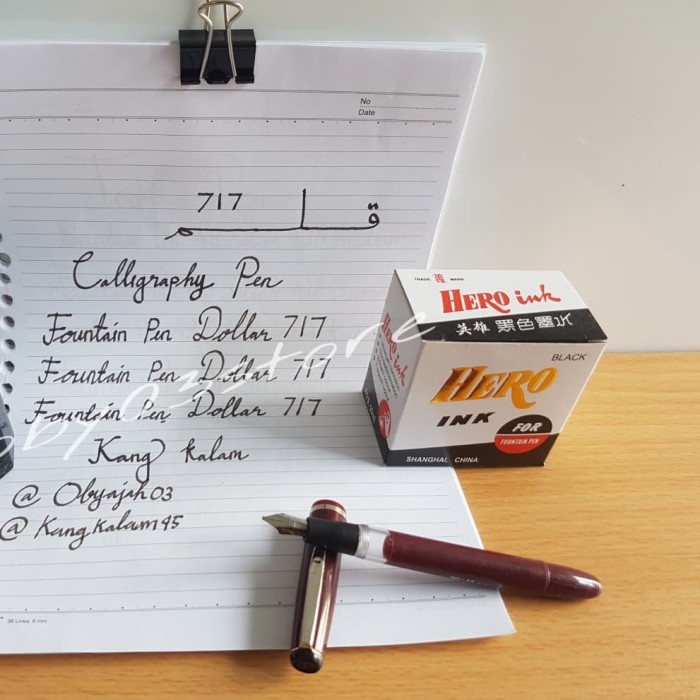 No
Date
717
قلم
Calligraphy Pen
Fountain Pen Dollar 717
Fountain Pen Dollar 717
Fountain Pen Dollar 717
Kang Kalam
@ Obyajah03
@ Kang.Kalam95
36 Lines, 6 mm
TRADE MARK
HERO ink
英雄 黑色墨水
BLACK
HERO
INK
FOR
FOUNTAIN PEN
SHANGHAI CHINA
Hero ink
oby03store